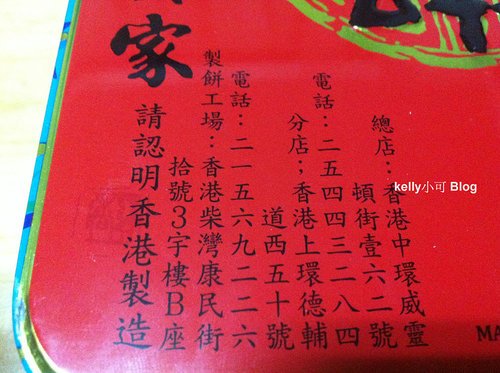 總店:香港中環威靈
頓街壹六二號
電話:二五四四三二八四
分店;香港上環德輔
道西五十號
電話:二一五六九二二六
製餅工場:香港柴灣康民街
拾號3字樓B座
請認明香港製造
家
kelly小可 Blog
MA